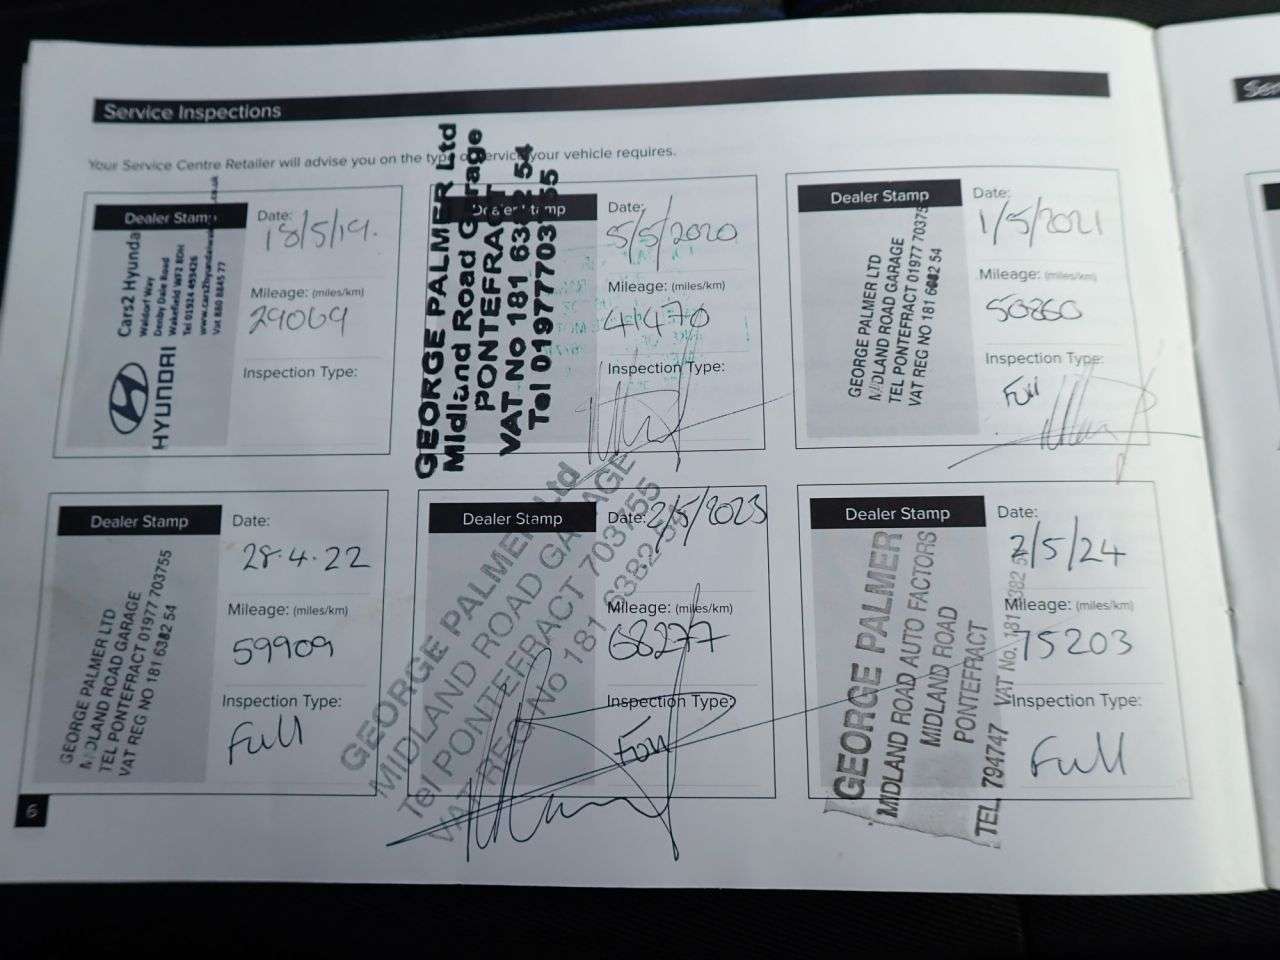 Service Inspections
Your Service Centre Retailer will advise you on the type of service your vehicle requires.
Dealer Stamp
Cars2 Hyundai
Waldorf Way
Denby Dale Road
Wakefield WF2 8DH
Tel 01924
Vat 880 8845 77
HYUNDAI
Date:
18/5/19.
Mileage: (miles/km)
29069
Inspection Type:
Dealer Stamp
GEORGE PALMER Ltd
Midland Road Garage
PONTEFRACT
VAT No 181 6382 54
Tel 01977703755
Date:
5/5/2020
Mileage: (miles/km)
41470
Inspection Type:
Dealer Stamp
GEORGE PALMER LTD
MIDLAND ROAD GARAGE
TEL PONTEFRACT 01977 703755
VAT REG NO 181 6382 54
Date:
1/5/2021
Mileage: (miles/km)
50860
Inspection Type:
Full
Dealer Stamp
GEORGE PALMER LTD
MIDLAND ROAD GARAGE
TEL PONTEFRACT 01977 703755
VAT REG NO 181 6382 54
Date:
28.4.22
Mileage: (miles/km)
59909
Inspection Type:
Full
Dealer Stamp
GEORGE PALMER Ltd
MIDLAND ROAD GARAGE
Tel PONTEFRACT 703755
VAT REG No 181 6382 54
Date:
2/5/2023
Mileage: (miles/km)
68277
Inspection Type:
Full
Dealer Stamp
GEORGE PALMER
MIDLAND ROAD AUTO FACTORS
MIDLAND ROAD
PONTEFRACT
TEL. 794747 VAT No. 181 6382 54
Date:
2/5/24
Mileage: (miles/km)
75203
Inspection Type:
Full
6